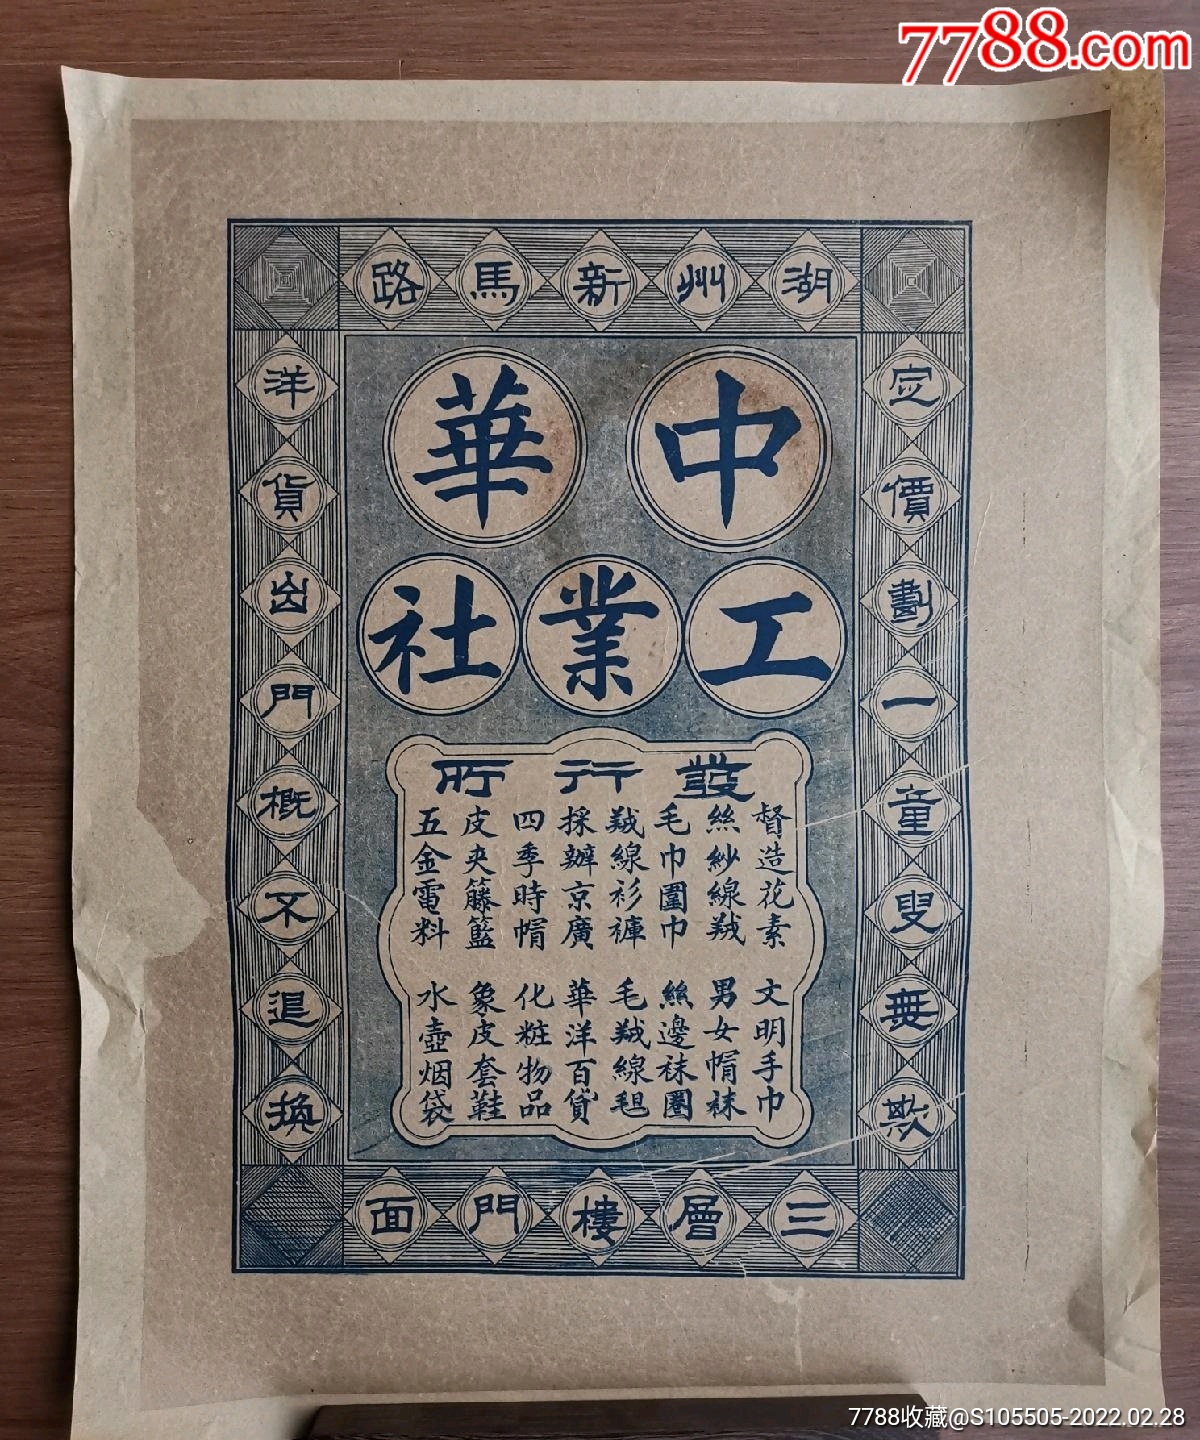 7788.com
湖州新馬路
中華
工業社
定價劃一童叟無欺
洋貨出門概不退換
發行所
督造花素 文明手巾
絲紗線羢 男女帽袜
毛巾圍巾 絲邊袜圈
羢線衫褲 毛羢線毯
採辦京廣 華洋百貨
四季時帽 化粧物品
皮夾籐籃 象皮套鞋
五金電料 水壺烟袋
三層樓門面
7788收藏@S105505-2022.02.28